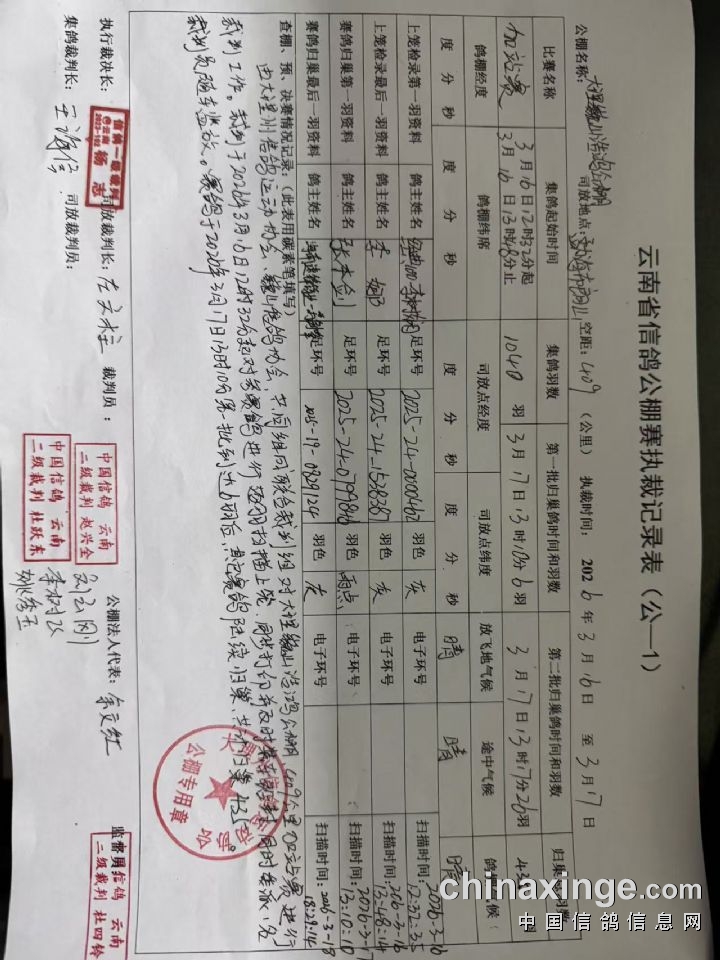 云南省信鸽公棚赛执裁记录表（公一1）
公棚名称：大理巍山浩鸿公棚 司放地点： 空距：409（公里） 执裁时间：2026年3月16日 至 3月17日
比赛名称 集鸽起始时间 集鸽羽数 第一批归巢鸽时间和羽数 第二批归巢鸽时间和羽数 归巢鸽羽数
加站赛 3月16日12时32分起 3月16日13时48分止 1040羽 3月17日13时10分6羽 3月17日13时17分26羽
鸽棚经度 鸽棚纬度 司放点经度 司放点纬度 放飞地气候 途中气候 鸽棚气候
度 分 秒 度 分 秒 度 分 秒 度 分 秒 晴 晴 晴
上笼检录第一羽资料 鸽主姓名 足环号 2025-24-0000462 羽色 灰 电子环号 扫描时间：2026-3-16 12:32:35
上笼检录最后一羽资料 鸽主姓名 李 足环号 2025-24-1583387 羽色 灰 电子环号 扫描时间：2026-3-16 13:48:14
赛鸽归巢第一羽资料 鸽主姓名 张本剑 足环号 2025-24-0799846 羽色 雨点 电子环号 扫描时间：2026-3-17 13:10:10
赛鸽归巢最后一羽资料 鸽主姓名 足环号 羽色 灰 电子环号 扫描时间：2026-3-18 18:29:14
查棚、预、决赛情况记录：（此表用碳素笔填写）
由大理州信鸽运动协会、巍山信鸽协会，共同组成联合裁判组对大理巍山浩鸿公棚409公里加站赛进行
裁判工作。裁判于2026年3月16日12时32分起对参赛鸽进行逐羽扫描上笼，同步打印并及时 同时委派一名
裁判员随车监放。赛鸽于2026年3月17日13时10分第一批到达6羽后，其它赛鸽陆续归巢，共计归巢435羽。
公棚专用章
执行裁决长： 信鸽一级裁判 云南 杨志 司放裁判长：左文柱 裁判员： 中国信鸽 云南 二级裁判 赵兴全 刘云刚 公棚法人代表：余文红 监督员： 信鸽 云南 二级裁判 杜四铃
集鸽裁判长：王 司放裁判员： 中国信鸽 云南 二级裁判 杜跃东 李树弘
chinaxinge.com
中国信鸽信息网